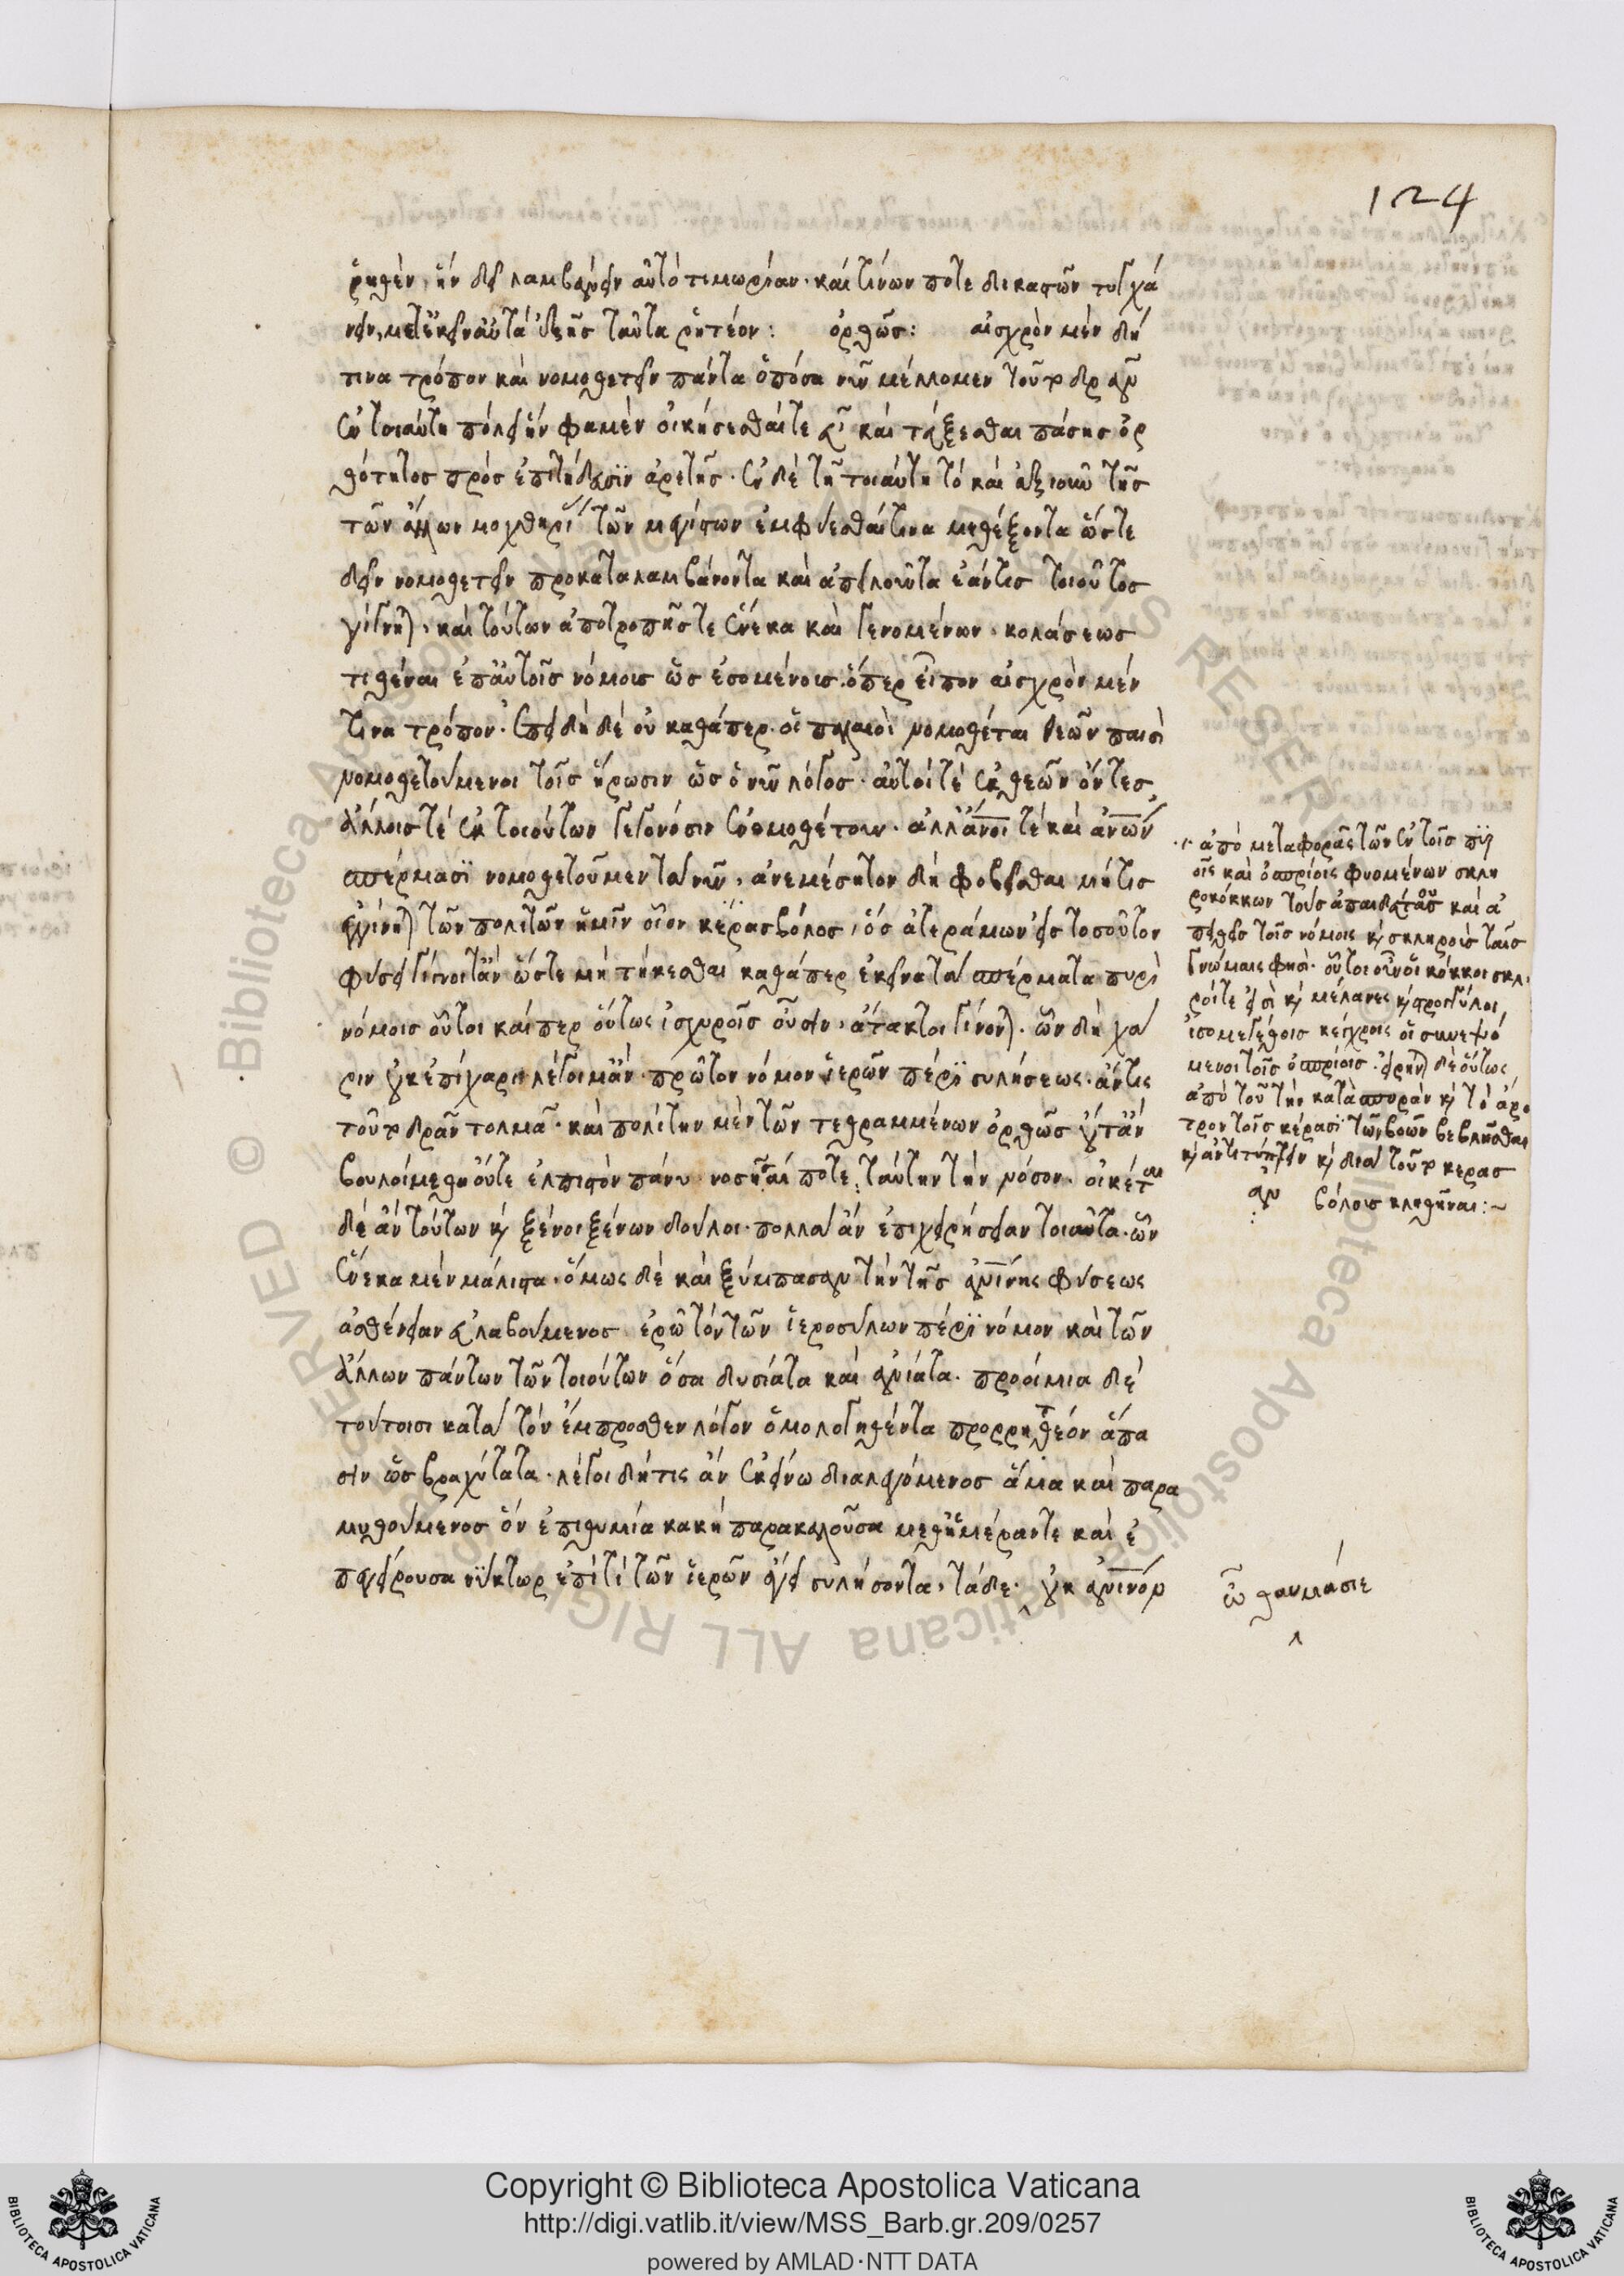 124
ῥηθὲν, ἣν δεῖ λαμβάνειν αὐτὸ τιμωρίαν· καὶ τίνων ποτε δικαστῶν τυγχά
νειν, μετ' ἐκεῖνα αὐτὰ ἑξῆς ταῦτα ῥητέον: ὀρθῶς: αἰσχρὸν μὲν δή
τινα τρόπον καὶ νομοθετεῖν πάντα ὁπόσα νῦν μέλλομεν τοῦτο δρᾶν
ἐν τοιαύτῃ πόλει ἥν φαμεν οἰκήσεσθαί τε εὖ καὶ τάξεσθαι πάσης ὀρ
θότητος πρὸς ἐπιτήδευσιν ἀρετῆς· ἐν δὲ τῇ τοιαύτῃ τὸ καὶ ἀξιοῦν τῆς
τῶν ἄλλων μοχθηρίας τῶν μεγίστων ἐμφύεσθαί τινα μεθέξοντα ὥστε
δεῖν νομοθετεῖν προκαταλαμβάνοντα καὶ ἀπειλοῦντα ἐάν τις τοιοῦτος
γίγνηται, καὶ τούτων ἀποτροπῆς τε ἕνεκα καὶ γενομένων, κολάσεως
τιθέναι ἐπ' αὐτοῖς νόμους ὡς ἐσομένοις, ὅπερ εἶπον αἰσχρὸν μέν
τινα τρόπον· ἐπειδὴ δὲ οὐ καθάπερ οἱ παλαιοὶ νομοθέται θεῶν παισὶ
νομοθετούμενοι τοῖς ἥρωσιν ὡς ὁ νῦν λόγος· αὐτοί τ' ἐκ θεῶν ὄντες
ἄλλοις τε ἐκ τοιούτων γεγονόσιν ἐνομοθέτουν· ἀλλ' ἄνοι τε καὶ ἀνων
σπέρμασι νομοθετοῦμεν τὰ νῦν, ἀνεμέσητον δὴ φοβεῖσθαι μή τις
ἐγγίγνηται τῶν πολιτῶν ἡμῖν οἷον κερασβόλος, ὃς ἀτεράμων εἰς τοσοῦτον
φύσει γίγνοιτ' ἂν ὥστε μὴ τήκεσθαι καθάπερ ἐκεῖνα τὰ σπέρματα πυρὶ
νόμοις οὗτοι καίπερ οὕτως ἰσχυροῖς οὖσιν, ἄτακτοι γίνονται. ὧν δὴ χά
ριν οὐκ ἐπίχαριν λέγοιμ' ἂν πρῶτον νόμον ἱερῶν πέρι συλήσεως, ἄν τις
τοῦτο δρᾶν τολμᾷ· καὶ πολίτην μὲν τῶν τεθραμμένων ὀρθῶς οὔτ' ἂν
βουλοίμεθα οὔτε ἐλπιστὸν πάνυ νοσῆσαί ποτε ταύτην τὴν νόσον· οἰκέται
δὲ ἂν τούτων καὶ ξένοι ξένων δοῦλοι· πολλὰ ἂν ἐπιχειρήσειαν τοιαῦτα· ὧν
ἕνεκα μὲν μάλιστα· ὅμως δὲ καὶ ξύμπασαν τὴν τῆς ἀνίνης φύσεως
ἀσθένειαν εὐλαβούμενος ἐρῶ τὸν τῶν ἱεροσύλων πέρι νόμον καὶ τῶν
ἄλλων πάντων τῶν τοιούτων ὅσα δυσίατα καὶ ἀνίατα. προοίμια δὲ
τούτοισι κατὰ τὸν ἔμπροσθεν λόγον ὁμολογηθέντα προρρητέον ἅπα
σιν ὡς βραχύτατα. λέγοι δή τις ἂν ἐκείνῳ διαλεγόμενος ἅμα καὶ παρα
μυθούμενος ὃν ἐπιθυμία κακὴ παρακαλοῦσα μεθ' ἡμέραν τε καὶ ἐ
πεγείρουσα νύκτωρ ἐπί τι τῶν ἱερῶν ἄγει συλήσοντα, τάδε. οὐκ ἀνινόν
ὦ θαυμάσιε
ἀπὸ μεταφορᾶς τῶν ἐν τοῖς
καὶ ὀσπρίοις φυομένων σκλη
ροκόκκων τοὺς ἀπαιδεύτους καὶ ἀ
πειθεῖς τοῖς νόμοις καὶ σκληροὺς ταῖς
γνώμαις φησί· οὗτοι οὖν οἱ κόκκοι σκλη
ροί τέ εἰσι καὶ μέλανες καὶ στρογγύλοι
ἰσομεγέθεις κέγχροις οἱ συνεψό
μενοι τοῖς ὀσπρίοις· εἴρηνται δὲ οὕτως
ἀπὸ τοῦ τὴν κατασπορὰν καὶ τὸ ἄρο
τρον τοῖς κέρασι τῶν βοῶν βεβλῆσθαι
καὶ ἀντιτύπτειν καὶ διὰ τοῦτο κερασ
βόλους κληθῆναι:~
© Biblioteca Apostolica Vaticana ALL RIGHTS RESERVED
Copyright © Biblioteca Apostolica Vaticana
http://digi.vatlib.it/view/MSS_Barb.gr.209/0257
powered by AMLAD·NTT DATA
BIBLIOTECA APOSTOLICA VATICANA
BIBLIOTECA APOSTOLICA VATICANA